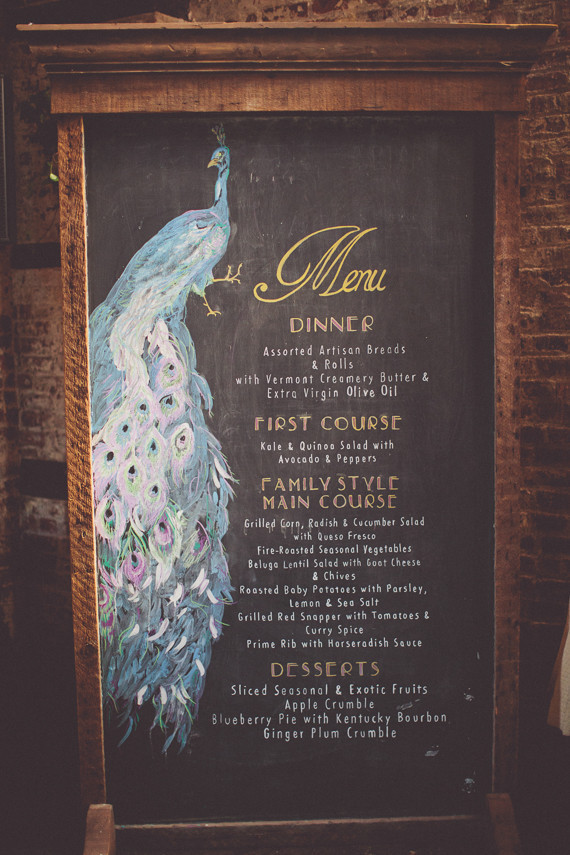 Menu
DINNER
Assorted Artisan Breads
& Rolls
with Vermont Creamery Butter &
Extra Virgin Olive Oil
FIRST COURSE
Kale & Quinoa Salad with
Avocado & Peppers
FAMILY STYLE
MAIN COURSE
Grilled Corn, Radish & Cucumber Salad
with Queso Fresco
Fire-Roasted Seasonal Vegetables
Beluga Lentil Salad with Goat Cheese
& Chives
Roasted Baby Potatoes with Parsley,
Lemon & Sea Salt
Grilled Red Snapper with Tomatoes &
Curry Spice
Prime Rib with Horseradish Sauce
DESSERTS
Sliced Seasonal & Exotic Fruits
Apple Crumble
Blueberry Pie with Kentucky Bourbon
Ginger Plum Crumble